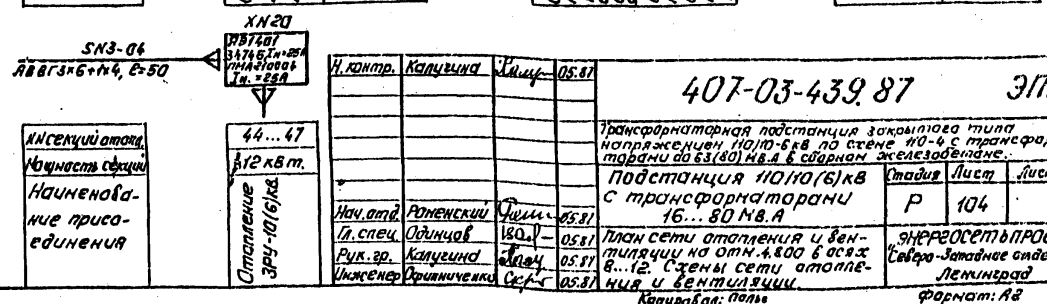 ХН20
SN3-04
АВВГ3×6+1×4, ℓ=50
Iн.=25А
NNсекций отопл.
Мощность секций
Наименова-
ние присо-
единения
44...47
12 кВт.
Отопление
ЗРУ-10(6)кВ
Н.контр. Калугина 05.87
Нач.отд. Роменский 05.87
Гл.спец. Одинцов 05.87
Рук.гр. Калугина 05.87
Инженер 05.87
407-03-439.87 ЭП
Трансформаторная подстанция закрытого типа
напряжением 110/10-6кВ по схеме 110-4 с трансфор-
торами до 63(80) МВ.А в сборном железобетоне.
Подстанция 110/10(6)кВ
с трансформаторами
16...80 МВ.А
Стадия Лист Лист
Р 104
План сети отопления и вен-
тиляции на отм. 4.800 в осях
8...12. Схемы сети отопле-
ния и вентиляции.
ЭНЕРГОСЕТЬПРО
Северо-Западное отде
Ленинград
Копировал:
Формат: А2